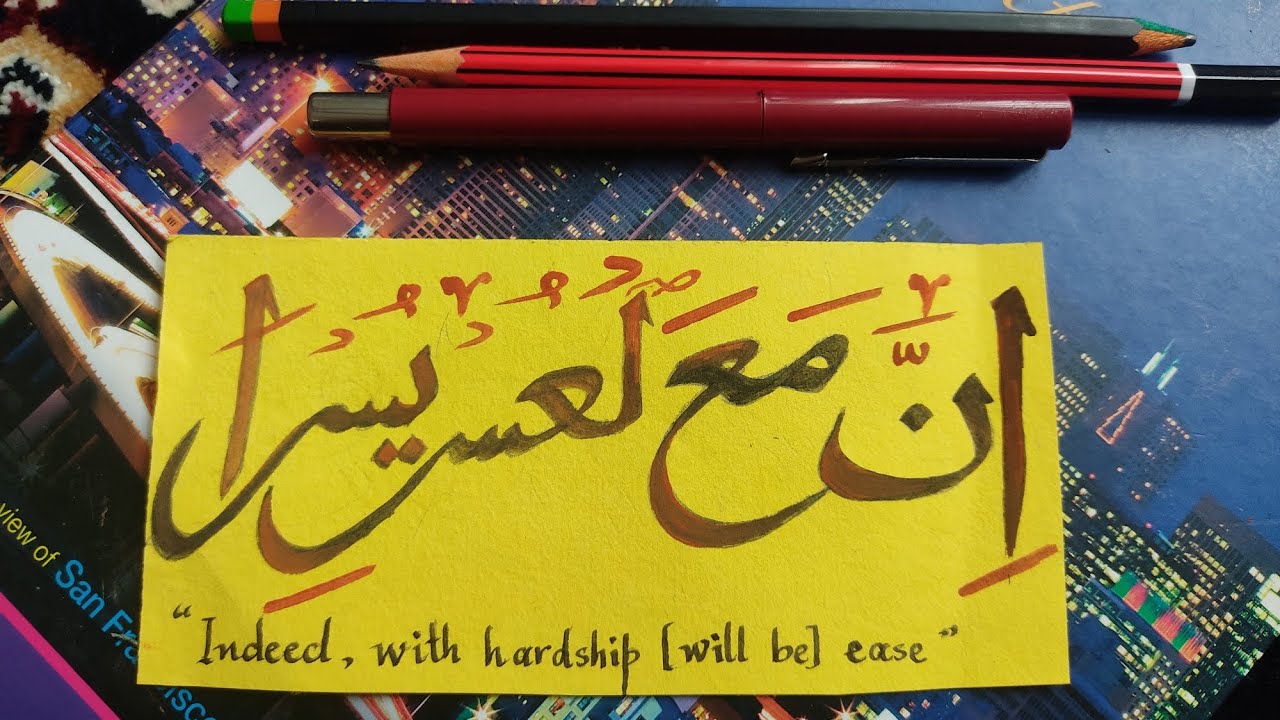 اِنَّ مَعَ لْعُسْرِ يُسْرًا
“Indeed, with hardship [will be] ease”
view of San Fra isco